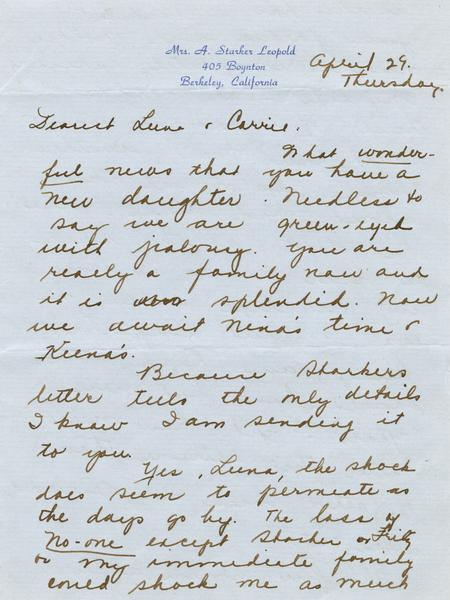 Mrs. A. Starker Leopold
405 Boynton
Berkeley, California
April 29.
Thursday.
Dearest Luna & Carrie,
What wonder-
ful news that you have a
new daughter. Needless to
say we are green-eyed
with jealousy. You are
really a family now and
it is splendid. Now
we await Nina's time &
Keena's.
Because Starkers
letter tells the only details
I know I am sending it
to you.
Yes, Luna, the shock
does seem to permeate as
the days go by. The loss of
no-one except Starker or Fritz
or my immediate family
could shock me as much